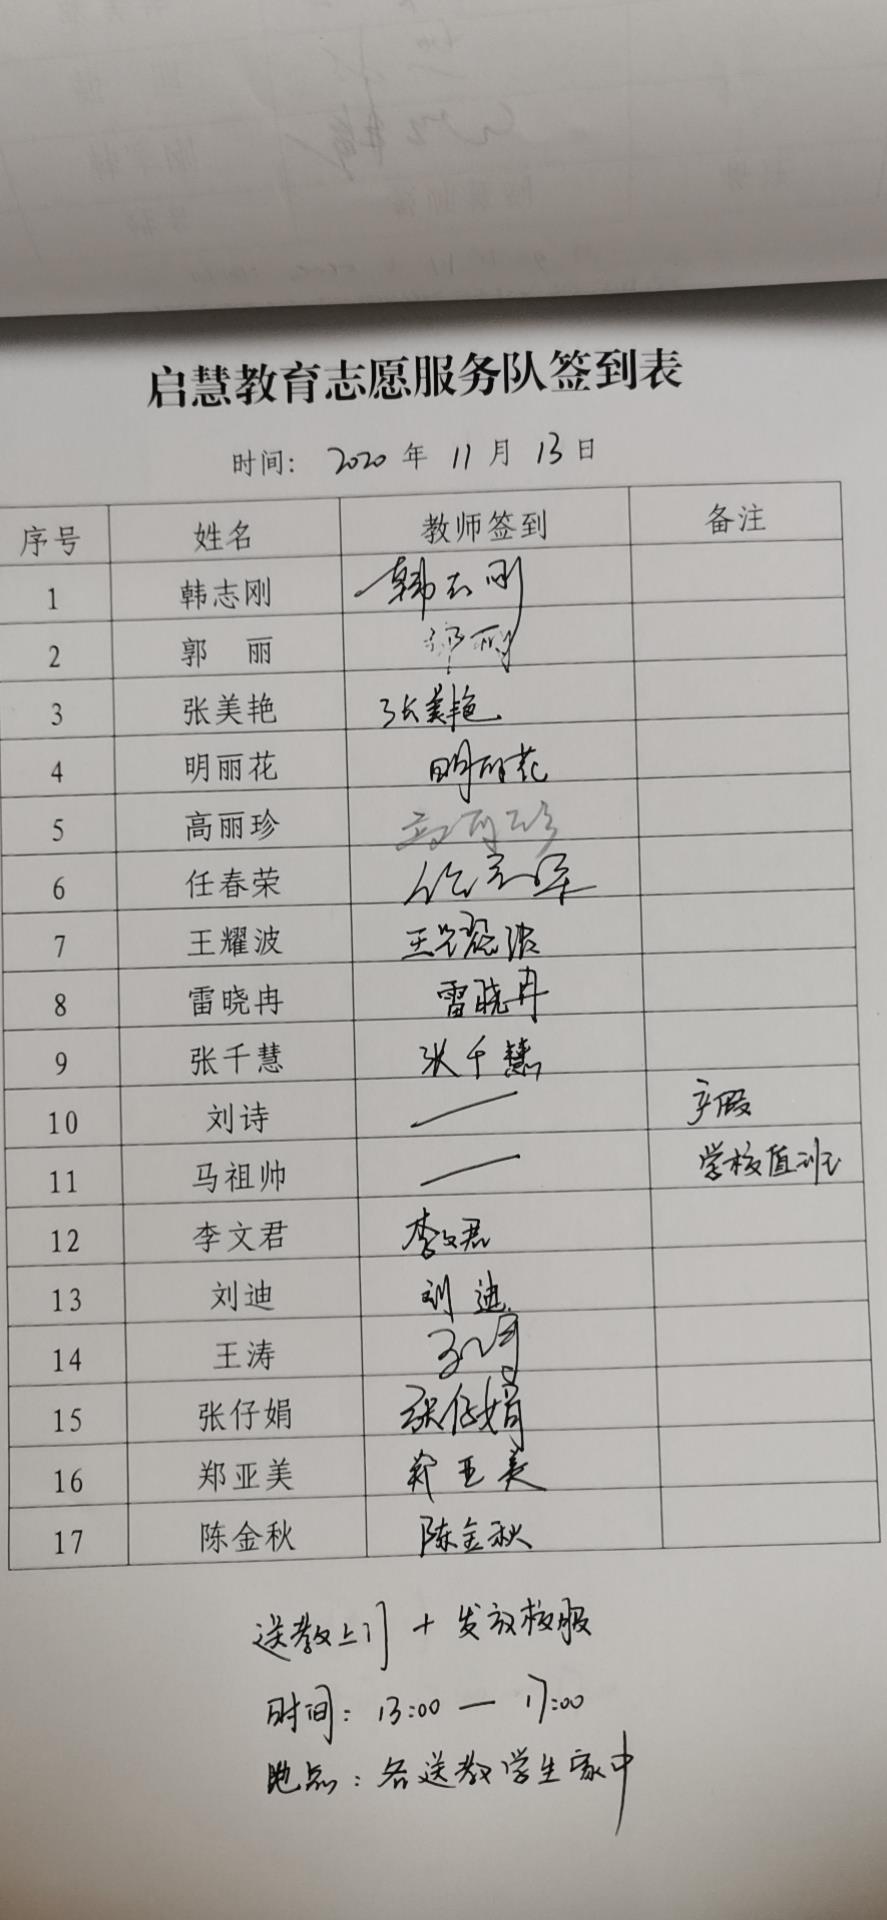 启慧教育志愿服务队签到表
时间: 2020 年 11 月 13 日
序号 姓名 教师签到 备注
1 韩志刚 韩志刚
2 郭 丽 郭丽
3 张美艳 张美艳
4 明丽花 明丽花
5 高丽珍 高丽珍
6 任春荣 任春荣
7 王耀波 王耀波
8 雷晓冉 雷晓冉
9 张千慧 张千慧
10 刘诗 — 产假
11 马祖帅 — 学校值班
12 李文君 李文君
13 刘迪 刘迪
14 王涛 王涛
15 张仔娟 张仔娟
16 郑亚美 郑亚美
17 陈金秋 陈金秋
送教上门 + 发放校服
时间: 13:00 — 17:00
地点: 各送教学生家中